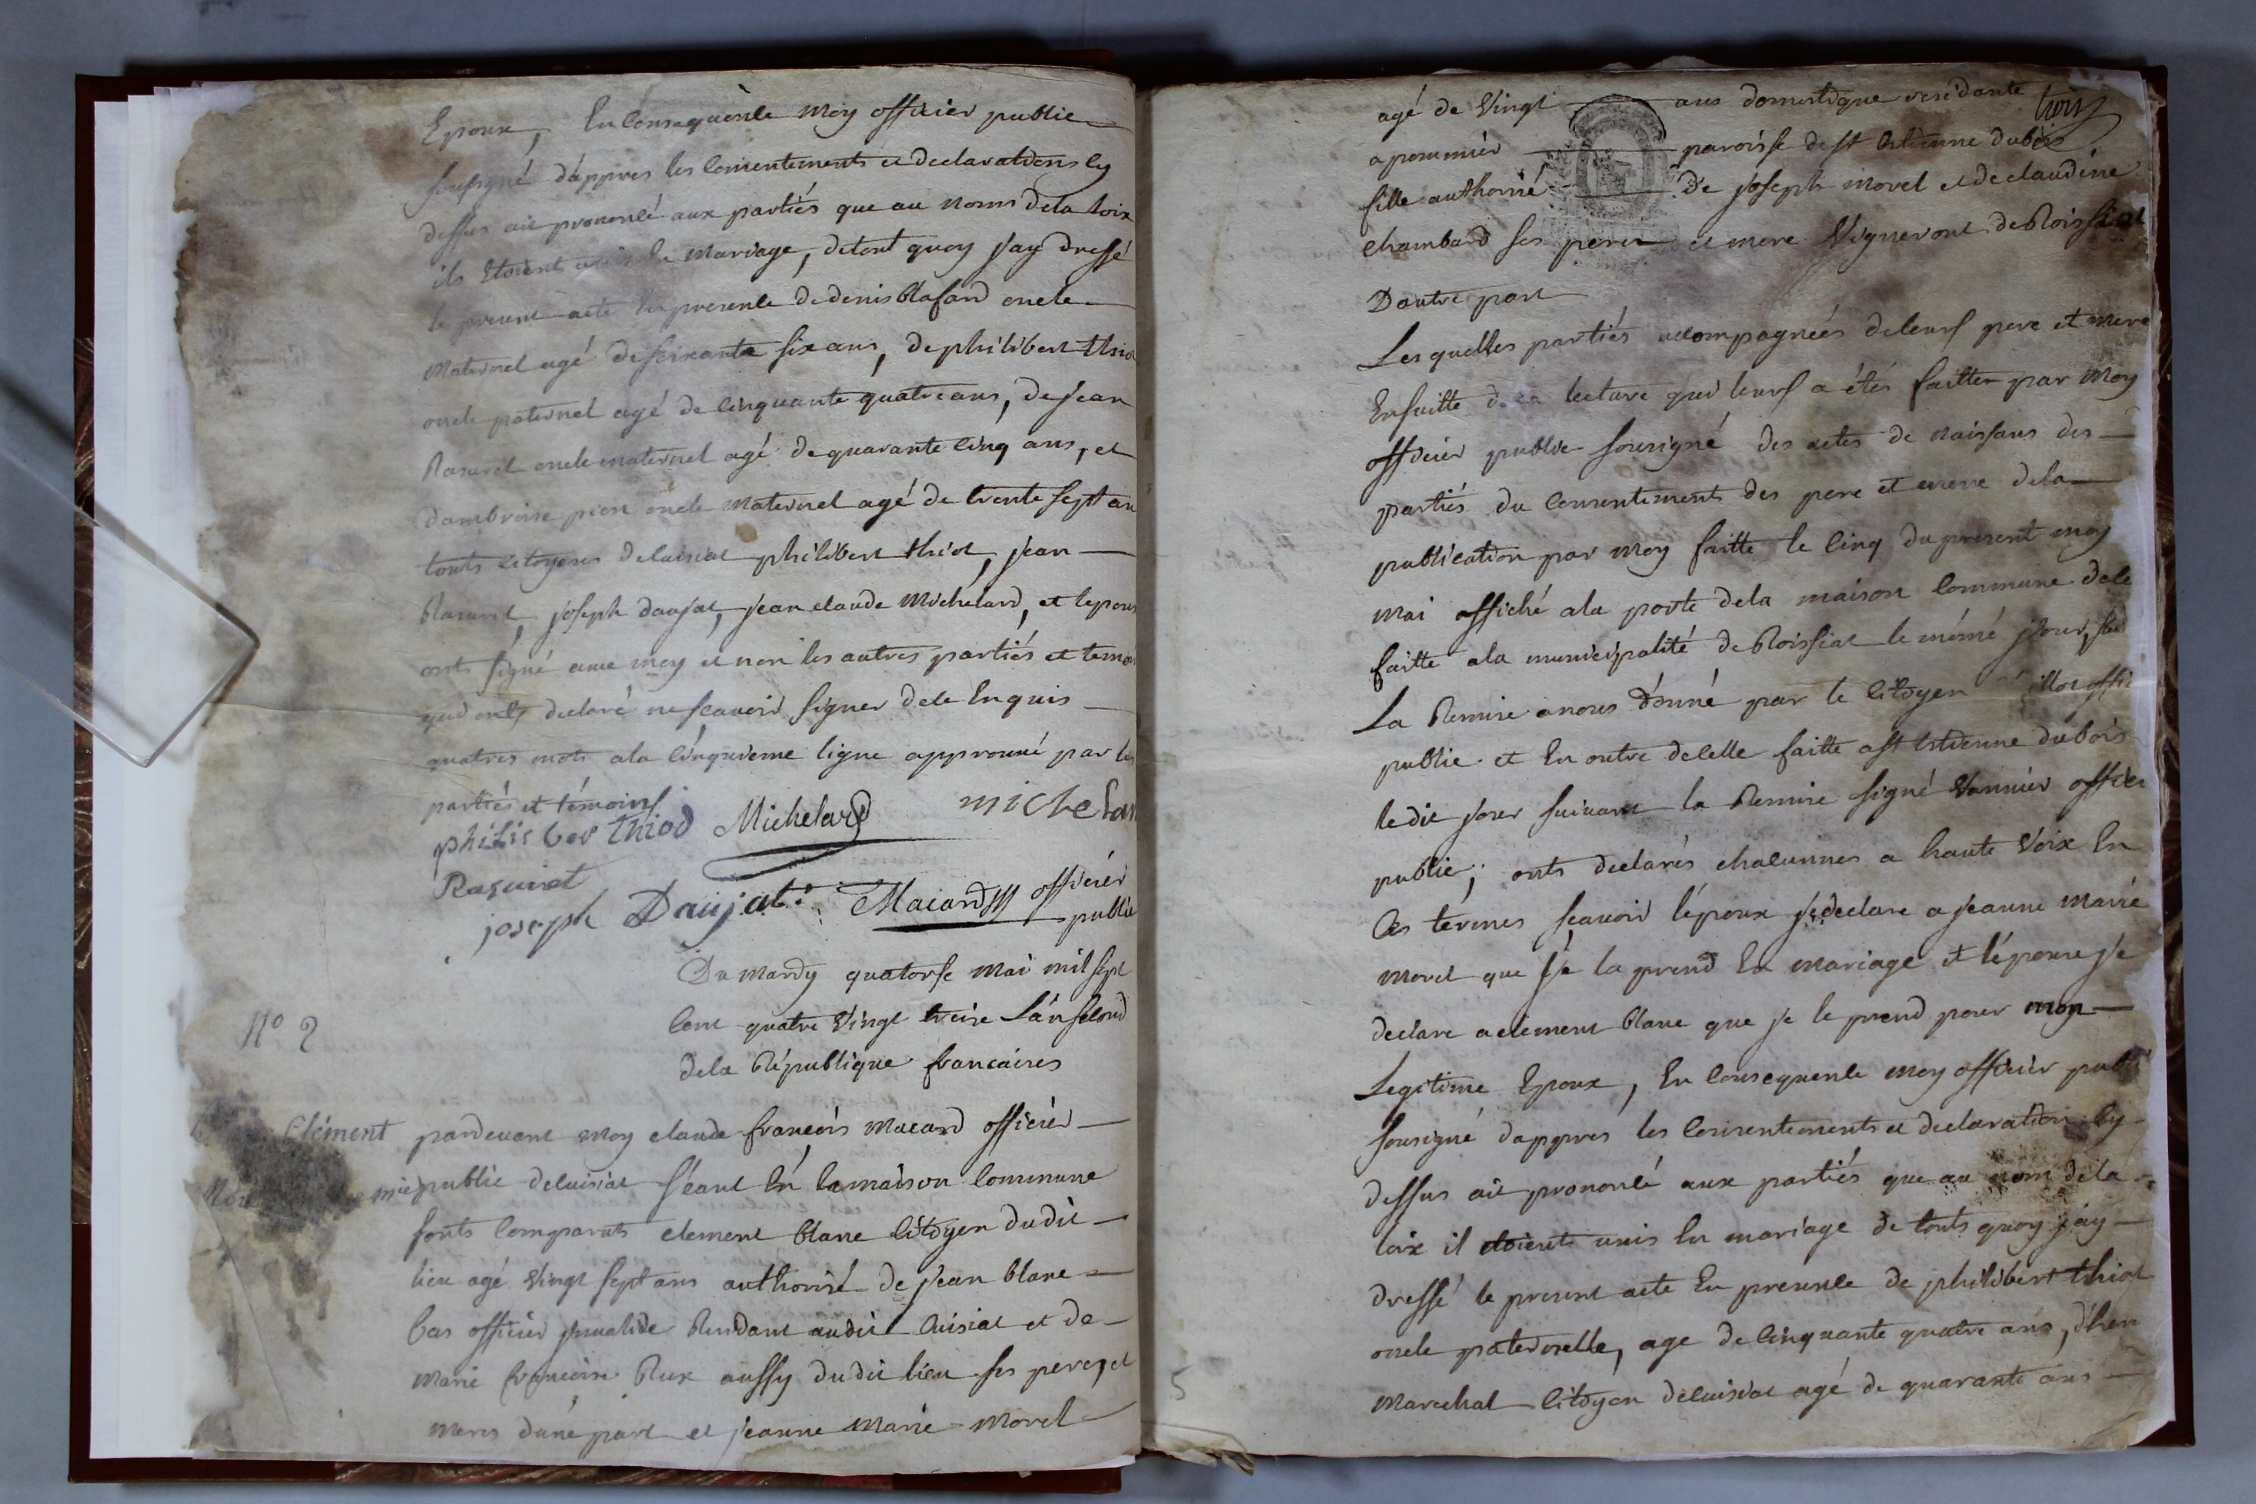 Epoux, En Consequence moy officier public
sousigné d'appres les Consentements et declarations cy
dessus ait prononcé aux partiés que au noms de la loix
ils etoient unis en mariage, detout quoy jay dressé
le present acte En presence de denis Blafard oncle
maternel agé de soixante six ans, de philibert thiot
oncle paternel agé de Cinquante quatre ans, de jean
Rasurel oncle maternel agé de quarante Cinq ans, et
dambroise pion oncle maternel agé de trente sept an
touts Citoyens de Cuisiat philibert thiot, jean
Rasurel, joseph daujat, jean claude Michelard, et lepoux
onts signé avec moy et non les autres partiés et temoi
qui onts declaré ne scavoir signer de ce Enquis
quatres mots ala Cinquieme ligne approuvé par les
partiés et témoins
philiber thiod Michelard michelar
Rasurel
joseph Daujat Macard officier
public
Du mardy quatorse mai mil sept
Cent quatre Vingt treise L'an second
dela République francaises
N° 2
Clément
pardevant moy claude francois macard officier
mie
public de Cuisiat séant En la maison Commune
sonts Comparuts clement blanc Citoyen dudit
lieu agé Vingt sept ans authorisé de jean blanc
bas officier invalide Residant audit Cuisiat et de
marie francoise Rux aussy dudit lieu ses pere, et
meres d'une part et jeanne marie morel
trois
agé de Vingt ans domestique residante
a pommier paroisse de st Estienne dubois
fille authorisé de joseph morel et de claudine
chambard ses peres et mere Vigneront de Roissiat
Dautre part
Les quelles partiés accompagnées de leurs pere et mere
Ensuitte de la lecture qui leurs a étés faitte par moy
officier public sousigné des actes de naissans des
partiés du Consentiments des pere et mere de la
publication par moy faitte le Cinq du present moy
mai affiché ala porte dela maison Commune de celle
faitte ala municipalité de Roissiat le même jour, sui
La Remise anous donné par le Citoyen offi
public et En outre de celle faitte a st Estienne dubois
ledit jour suivant la Remise signé Vannier officier
public; onts declarés chacunnes a haute Voix En
Ces termes scavoir l'époux je declare a jeanne marie
morel que je la prend En mariage et l'épouse je
declare a clement blanc que je le prend pour mon
Legitime Epoux, En Consequence moy officier public
sousigné dappres les Consentements et declaration Cy
dessus ait prononcé aux partiés que au nom dela
loix il etoients unis En mariage de touts quoy jáy
dressé le present acte En presence de philibert thiot
oncle paternelle, age de Cinquante quatre ans,
marechal Citoyen de Cuisiat agé de quarante ans
5